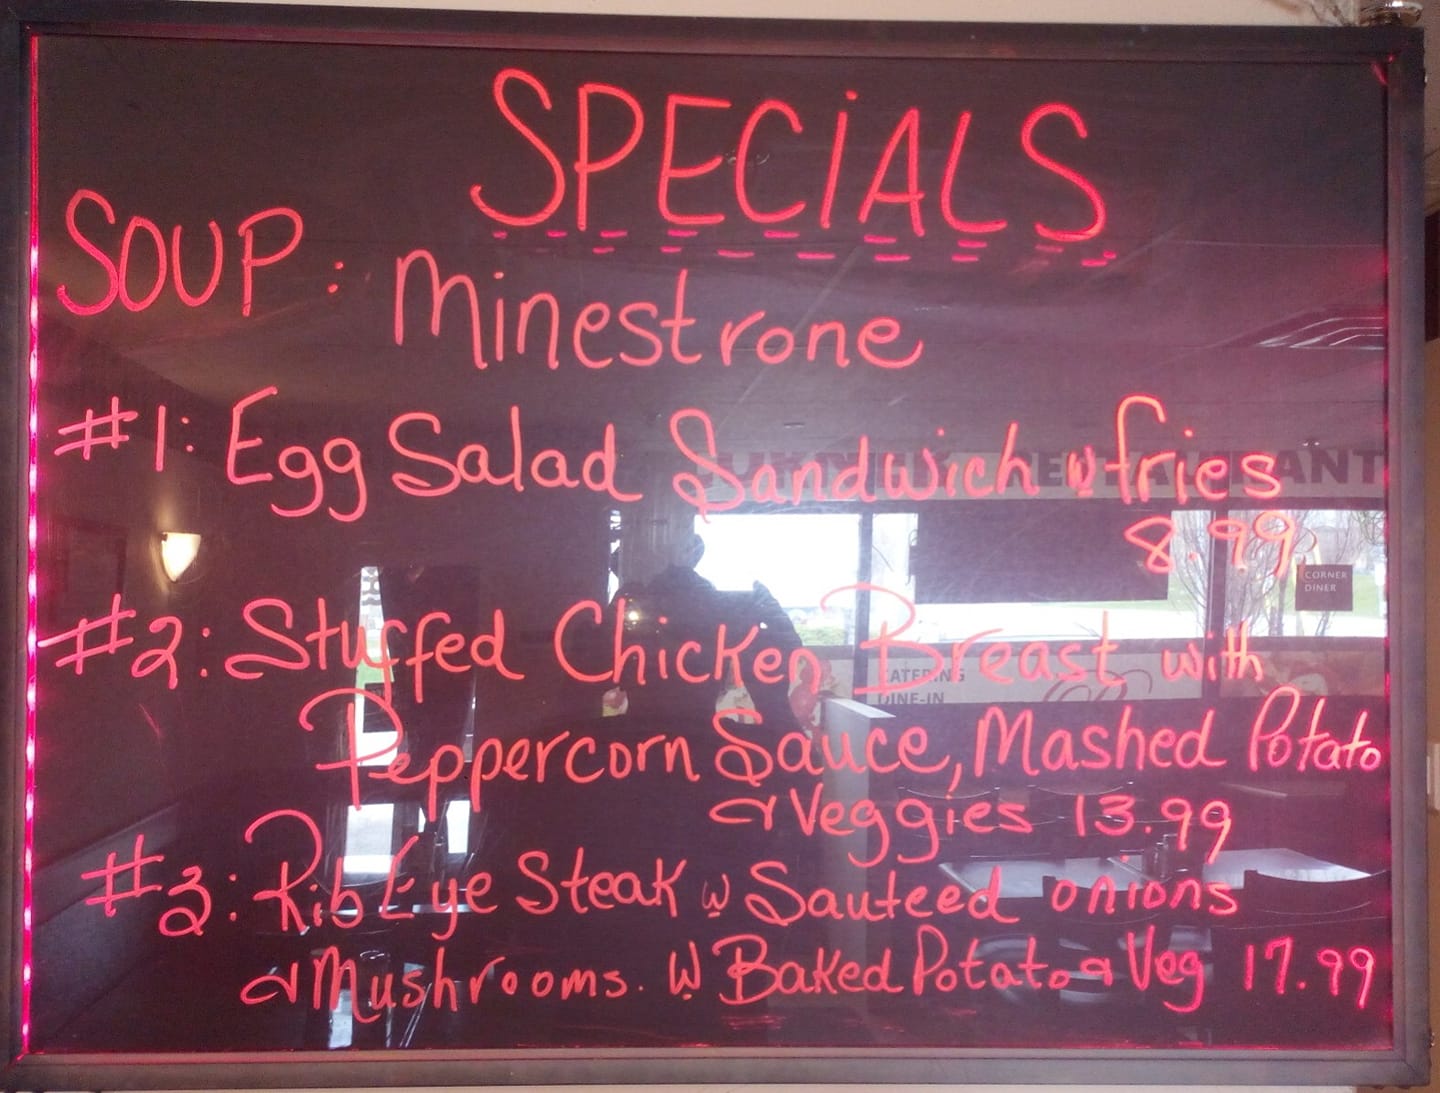 SPECIALS
SOUP: Minestrone
#1: Egg Salad Sandwich w fries
8.99
#2: Stuffed Chicken Breast with
Peppercorn Sauce, Mashed Potato
& Veggies 13.99
#3: Rib Eye Steak w Sauteed onions
& Mushrooms. W Baked Potato & Veg 17.99
CORNER RESTAURANT
CORNER
DINER
CATERING
DINE-IN